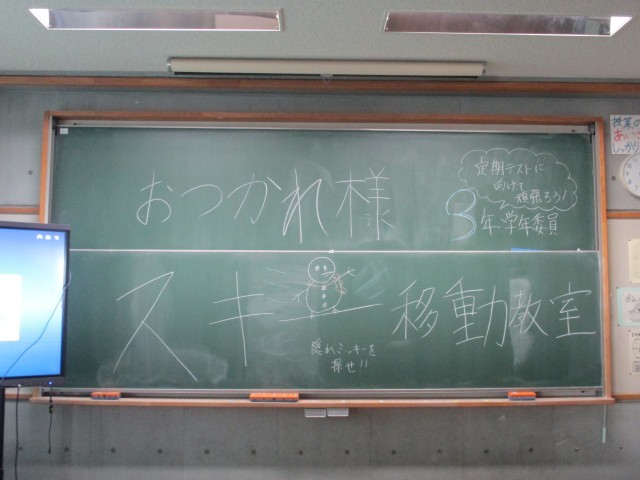 おつかれ様
定期テストに
向けて
頑張ろう!!
3年学年委員
スキー移動教室
隠れミッキーを
探せ!!
授業の